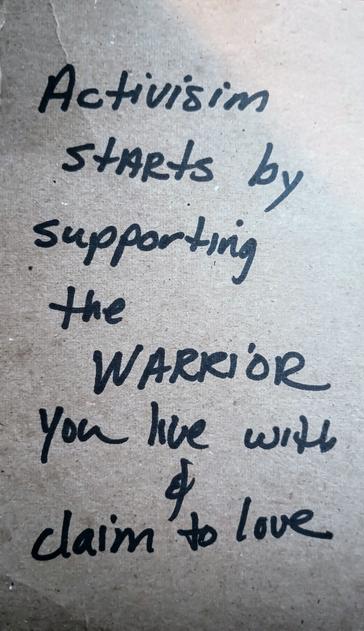 Activisim
STARTS by
supporting
the
WARRIOR
You live with
&
claim to love